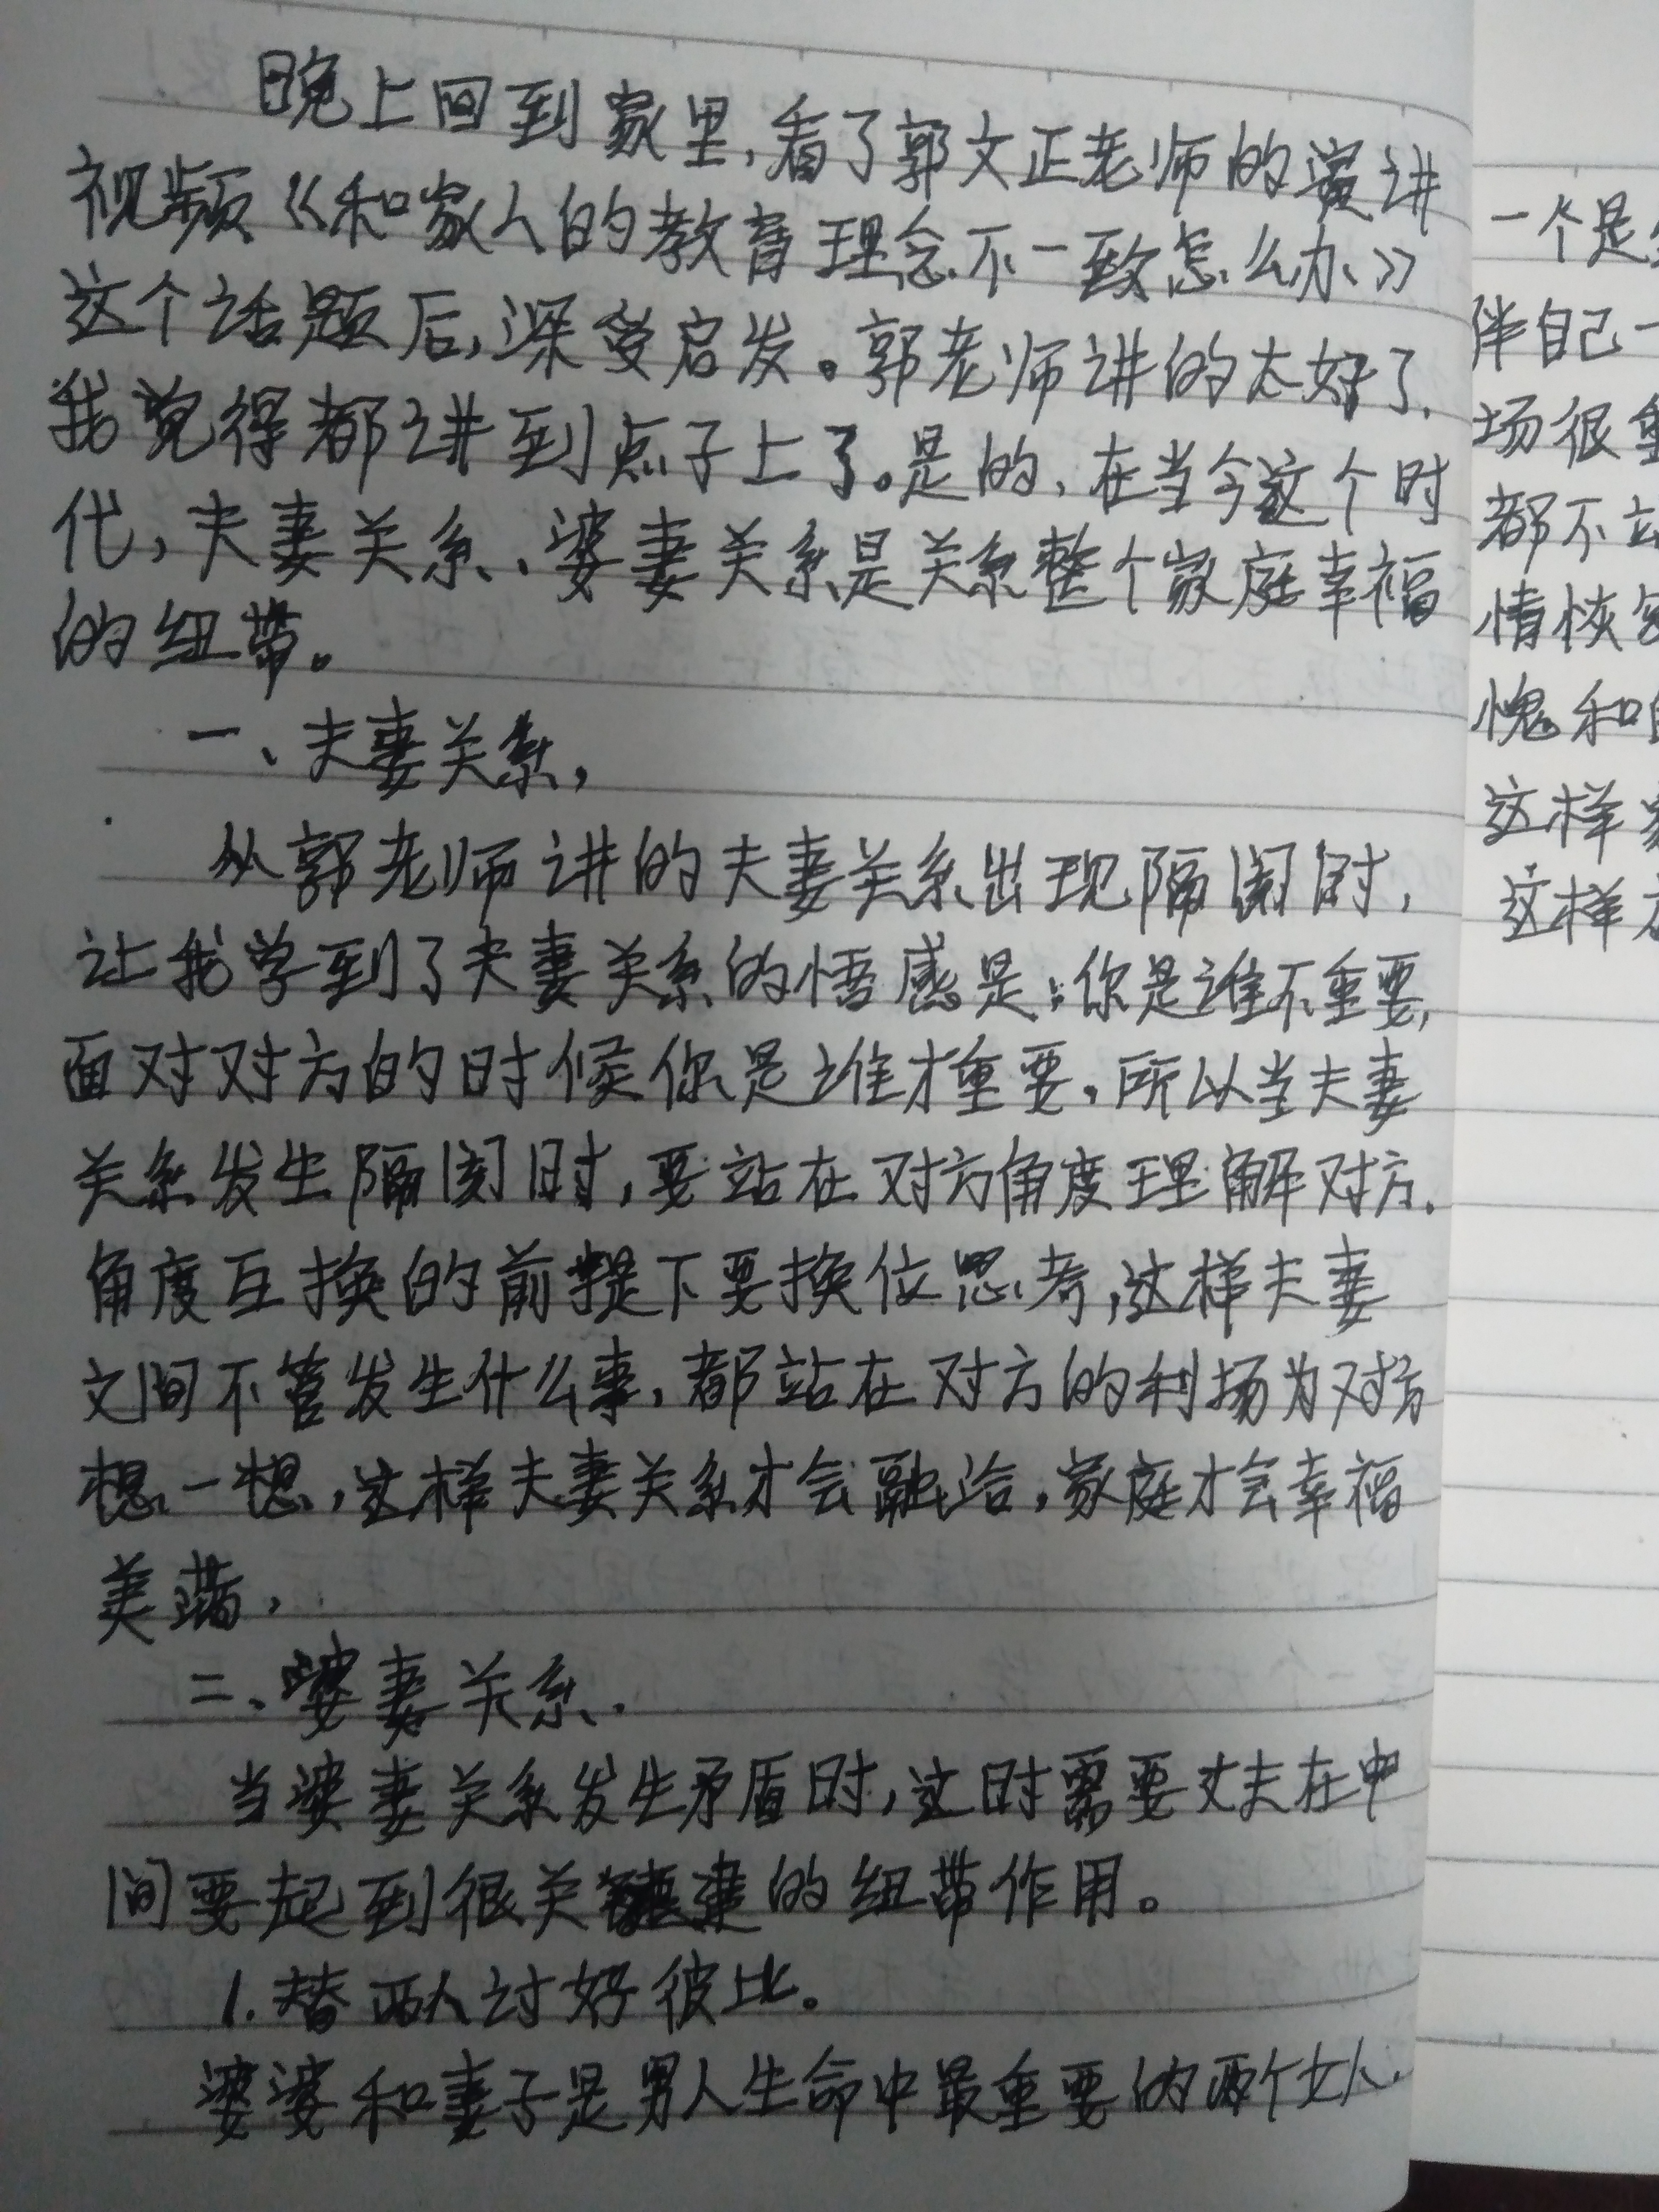 晚上回到家里,看了郭文正老师的演讲
视频《和家人的教育理念不一致怎么办》
这个话题后,深受启发。郭老师讲的太好了.
我觉得都讲到点子上了。是的,在当今这个时
代,夫妻关系、婆妻关系是关系整个家庭幸福
的纽带。
一、夫妻关系,
从郭老师讲的夫妻关系出现隔阂时,
让我学到了夫妻关系的悟感是:你是谁不重要,
面对对方的时候你是谁才重要。所以当夫妻
关系发生隔阂时,要站在对方角度理解对方.
角度互换的前提下要换位思考,这样夫妻
之间不管发生什么事,都站在对方的利场为对方
想一想,这样夫妻关系才会融洽,家庭才会幸福
美满,
二、婆妻关系.
当婆妻关系发生矛盾时,这时需要丈夫在中
间要起到很关建的纽带作用。
1.替两人讨好彼比。
婆婆和妻子是男人生命中最重要的两个女人.
一个是
伴自己一
场很重
都不站
情恢
愧和自
这样
这样